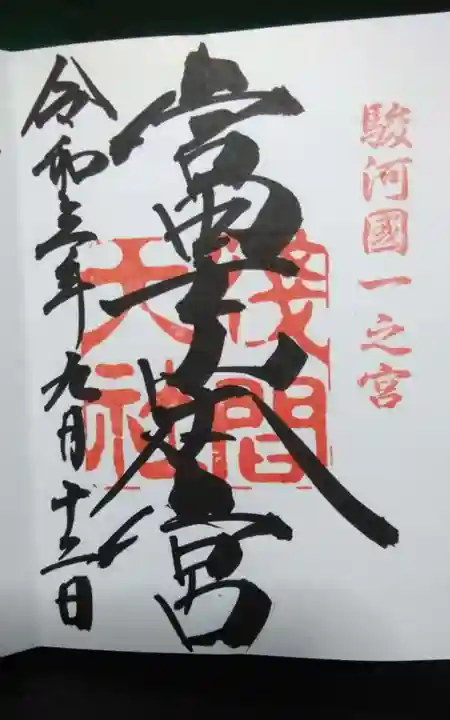 駿河國一之宮
富士本宮
淺間
大社
令和三年九月十二日